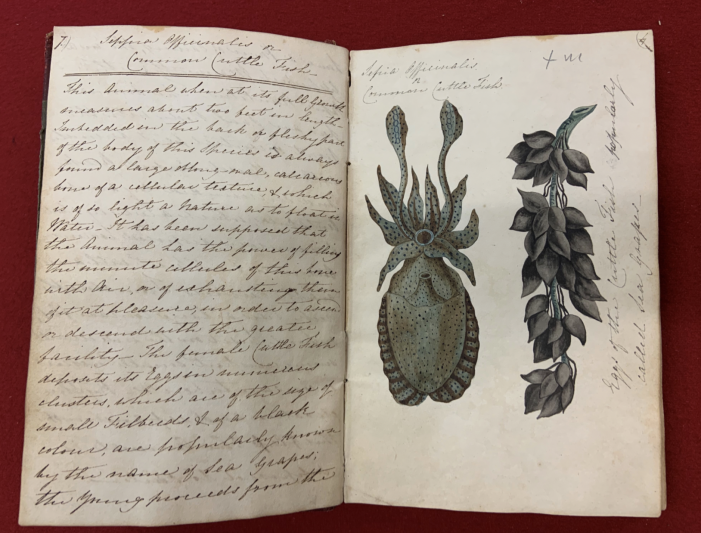 7)
Seppia Officinalis or
Common Cuttle Fish.
This Animal when at its full growth
measures about two feet in length.
Imbedded in the back or fleshy part
of the body of this Species is always
found a large oblong-oval, calcareous
bone of a cellular texture, & which
is of so light a Nature as to float in
Water. It has been supposed that
the Animal has the power of filling
the minute cellules of this bone
with Air, or of exhausting them
of it at pleasure, in order to ascend
or descend with the greater
facility. The female Cuttle Fish
deposits its Eggs in numerous
clusters, which are of the size of
small Filberds, & of a black
colour, are popularly known
by the name of Sea Grapes;
the Young proceeds from the
Sepia Officinalis
or
Common Cuttle Fish
Eggs of the Cuttle Fish popularly
called Sea Grapes.